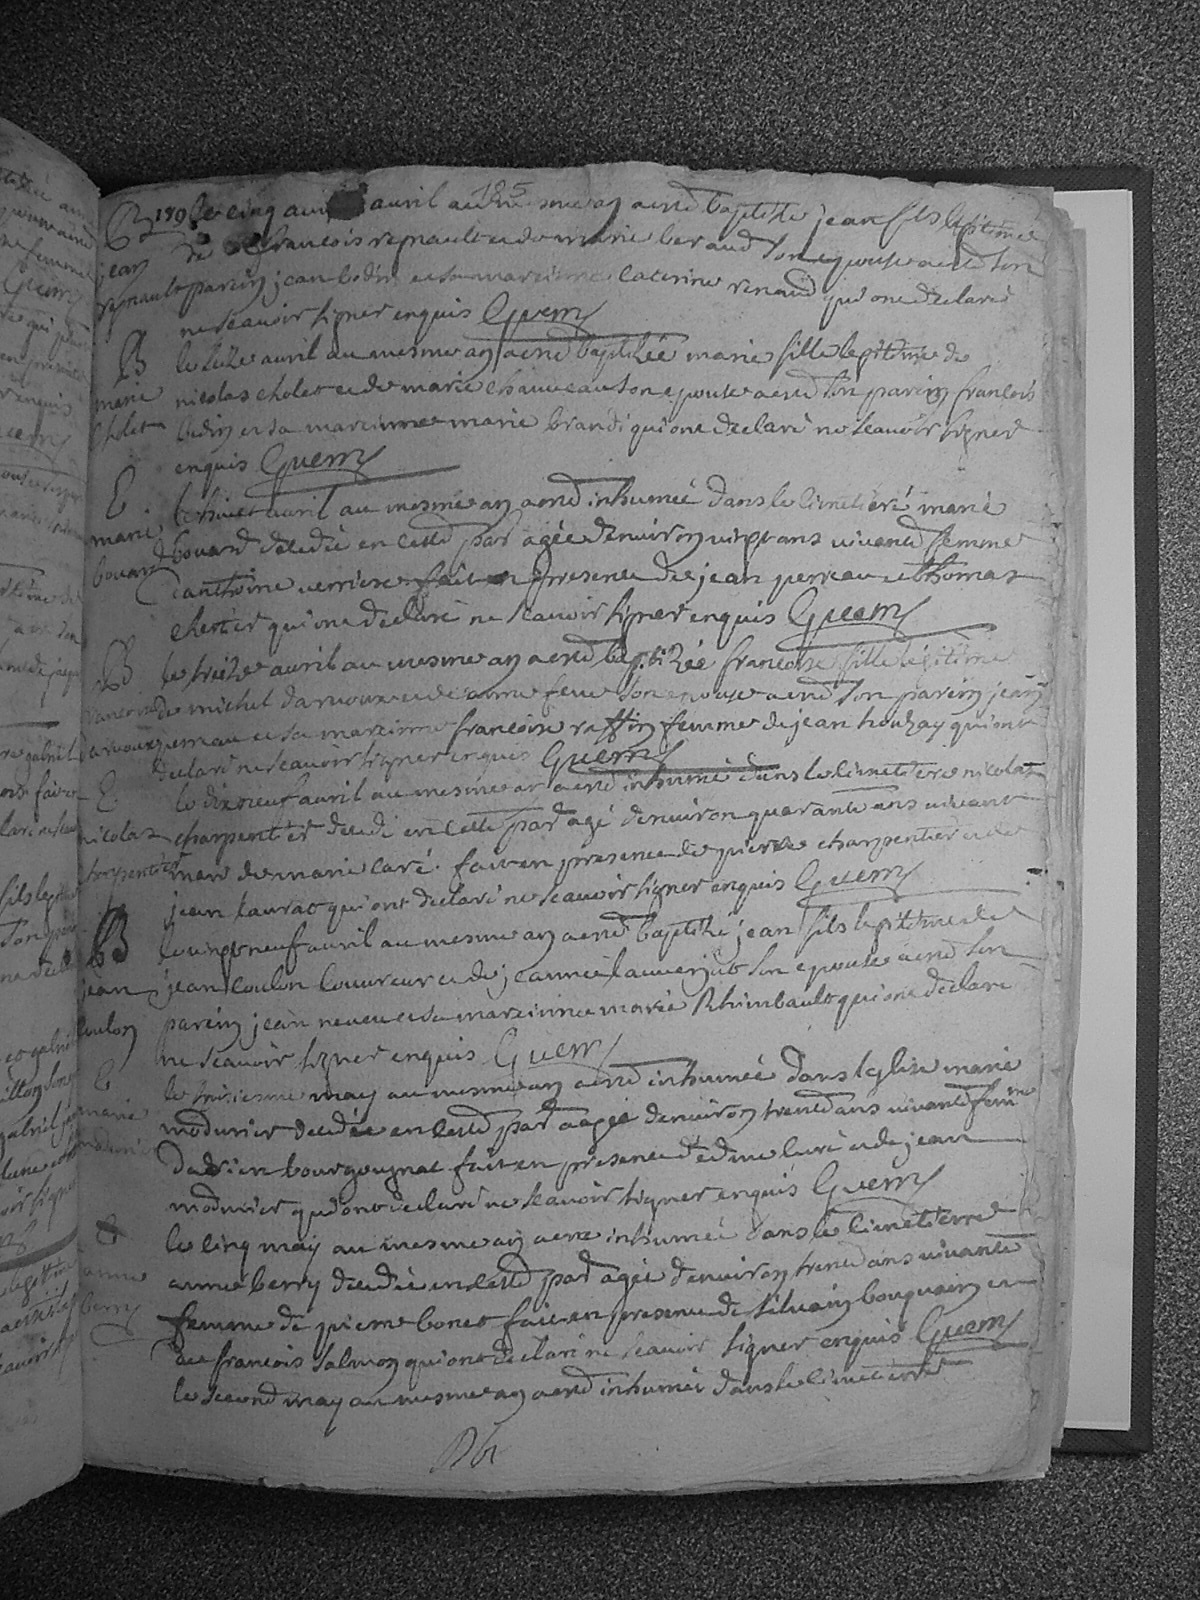 185
B 189 le cinq avril au mesme an a esté baptisé jean fils legitime
jean de francois regnault et de marie beraud son epouse a esté son
regnault parein jean bodin et sa mareinne caterine renaud qui ont declaré
ne scavoir signer enquis Guerry
B le seize avril au mesme an a esté baptizée marie fille legitime de
marie nicolas cholet et de marie chauveau son epouse a esté son parein francois
cholet bodin et sa mareinne marie brandi qui ont declaré ne scavoir signer
enquis Guerry
E le huict avril au mesme an a esté inhumée dans le cimetiere marie
marie bouard decedée en cette par agée d'environ vingt ans vivante femme
bouard d'anthoine verrier fait en presence de jean perreau et thomas
qui ont declaré ne scavoir signer enquis Guerry
B le treize avril au mesme an a esté baptizée francoise fille legitime
francoise de michel darnoux et de anne feve son epouse a esté son parein jean
et sa mareinne francoise raffin femme de jean houzay qui ont
declaré ne scavoir signer enquis Guerry
E le dixneuf avril au mesme an a esté inhumé dans le cimetiere nicolas
nicolas charpentier decedé en cette par agé d'environ quarante ans vivant
charpentier mary de marie caré fait en presence de pierre charpentier et de
jean laurat qui ont declaré ne scavoir signer enquis Guerry
B le vingt neuf avril au mesme an a esté baptisé jean fils legitime de
jean jean coulon couvreur et de jeanne lauverjat son epouse a esté son
coulon parein jean neveu et sa mareinne marie Rhimbault qui ont declaré
ne scavoir signer enquis Guerry
E le troisiesme may au mesme an a esté inhumée dans l'eglise marie
marie modurier decedée en cette par aagée d'environ trente ans vivante femme
modurier d'adrien bourgougnat fait en presence d'edme curé et de jean
modurier qui ont declaré ne scavoir signer enquis Guerry
E le cinq may au mesme an a esté inhumée dans le cimetierre
anne anne berry decedée en cette par agée d'environ trente ans vivante
berry femme de pierre bonet fait en presence de silvain bouquain et
de francois salmon qui ont declaré ne scavoir signer enquis Guerry
le second may au mesme an a esté inhumé dans le cimetierre